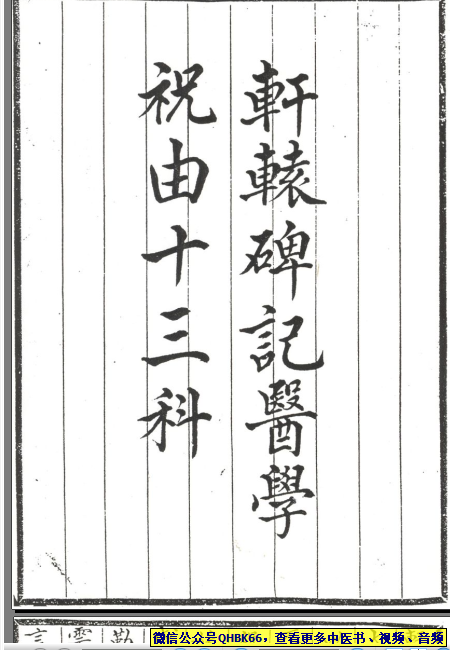 軒轅碑記醫學
祝由十三科
勤
雲
言
微信公众号QHBK66，查看更多中医书、视频、音频